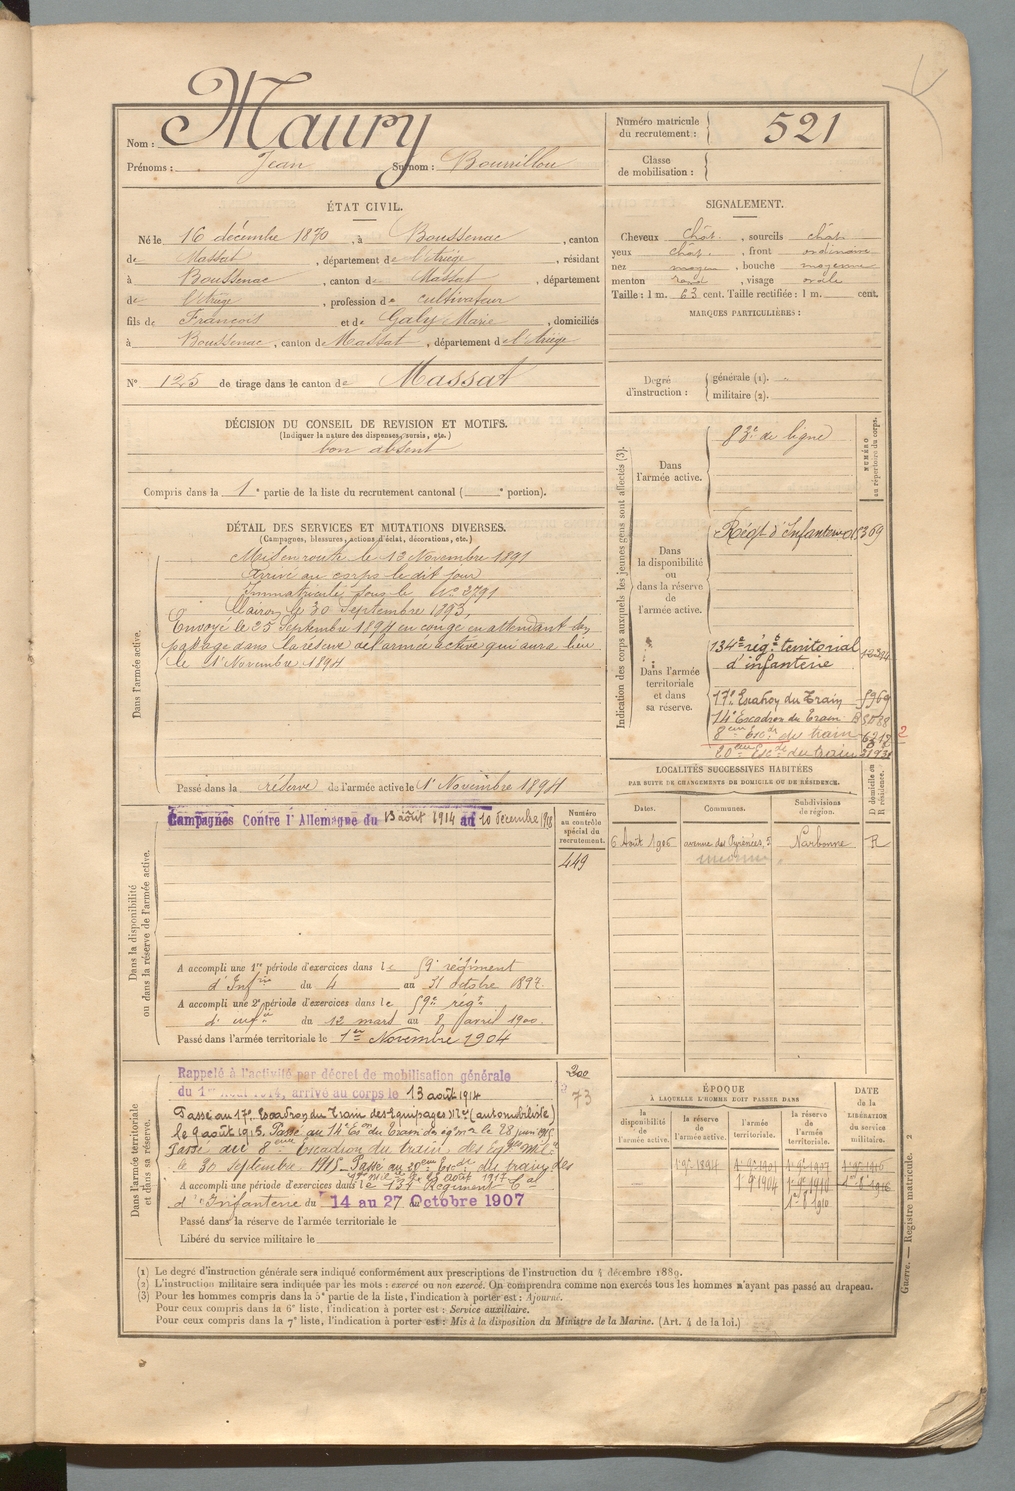 Nom : Maury
Prénoms : Jean Surnom : Bourrillou
Numéro matricule du recrutement : 521
Classe de mobilisation :
ÉTAT CIVIL.
Né le 16 décembre 1870, à Boussenac, canton
de Massat, département de l'Ariège, résidant
à Boussenac, canton de Massat, département
de l'Ariège, profession de cultivateur
fils de François et de Galy Marie, domiciliés
à Boussenac, canton de Massat, département de l'Ariège
N° 125 de tirage dans le canton de Massat
SIGNALEMENT.
Cheveux chât., sourcils chât.
yeux chât., front ordinaire
nez moyen, bouche moyenne
menton rond, visage ovale
Taille : 1 m. 63 cent. Taille rectifiée : 1 m. cent.
MARQUES PARTICULIÈRES :
Degré d'instruction : générale (1).
militaire (2).
DÉCISION DU CONSEIL DE REVISION ET MOTIFS.
(Indiquer la nature des dispenses, sursis, etc.)
bon absent
Compris dans la 1e partie de la liste du recrutement cantonal ( e portion).
DÉTAIL DES SERVICES ET MUTATIONS DIVERSES.
(Campagnes, blessures, actions d'éclat, décorations, etc.)
Dans l'armée active.
Mis en route le 13 Novembre 1891
Arrivé au corps le dit jour
Immatriculé sous le N° 3791
Clairon le 30 Septembre 1893,
Envoyé le 25 Septembre 1894 en congé en attendant son
passage dans la réserve de l'armée active qui aura lieu
le 1er Novembre 1894
Passé dans la réserve de l'armée active le 1er Novembre 1894
Indication des corps auxquels les jeunes gens sont affectés (3).
NUMÉRO au répertoire du corps.
Dans l'armée active.
83e de ligne
Dans la disponibilité ou dans la réserve de l'armée active.
Régt d'Infanterie
Dans l'armée territoriale et dans sa réserve.
134e régt territorial
d'infanterie
17e Escadron du Train
14e Escadron du Train
8eme Escon du train
20eme Escon du train
LOCALITÉS SUCCESSIVES HABITÉES
PAR SUITE DE CHANGEMENTS DE DOMICILE OU DE RÉSIDENCE.
Dates. Communes. Subdivisions de région. D domicile ou R résidence.
6 Août 1906 avenue des Pyrénées, 5 Narbonne R
Dans la disponibilité ou dans la réserve de l'armée active.
Campagnes Contre l'Allemagne du 13 août 1914 au 20 décembre 1918
Numéro au contrôle spécial du recrutement.
449
A accompli une 1re période d'exercices dans le 59e régiment
d'Infrie du 4 au 31 octobre 1897.
A accompli une 2e période d'exercices dans le 59e régt
d'infie du 12 mars au 8 avril 1900.
Passé dans l'armée territoriale le 1er Novembre 1904
Dans l'armée territoriale et dans sa réserve.
Rappelé à l'activité par décret de mobilisation générale
du 1er Août 1914, arrivé au corps le 13 août 1914
200
73
Passé au 17e Escadron du Train des Equipages Mres (automobiliste)
le 9 août 1915. Passé au 14e Eson du Train
Passé au 8eme Escadron du train des
le 30 septembre 1915. Passé au 20eme Escon du train des
A accompli une période d'exercices dans le 134 Régiment
d'Infanterie du 14 au 27 Octobre 1907
Passé dans la réserve de l'armée territoriale le
Libéré du service militaire le
ÉPOQUE
À LAQUELLE L'HOMME DOIT PASSER DANS
la disponibilité de l'armée active. la réserve de l'armée active. l'armée territoriale. la réserve de l'armée territoriale.
DATE de la LIBÉRATION du service militaire.
(1) Le degré d'instruction générale sera indiqué conformément aux prescriptions de l'instruction du 4 décembre 1889.
(2) L'instruction militaire sera indiquée par les mots : exercé ou non exercé. On comprendra comme non exercés tous les hommes n'ayant pas passé au drapeau.
(3) Pour les hommes compris dans la 5e partie de la liste, l'indication à porter est : Ajourné.
Pour ceux compris dans la 6e liste, l'indication à porter est : Service auxiliaire.
Pour ceux compris dans la 7e liste, l'indication à porter est : Mis à la disposition du Ministre de la Marine. (Art. 4 de la loi.)
Guerre. — Registre matricule. 2